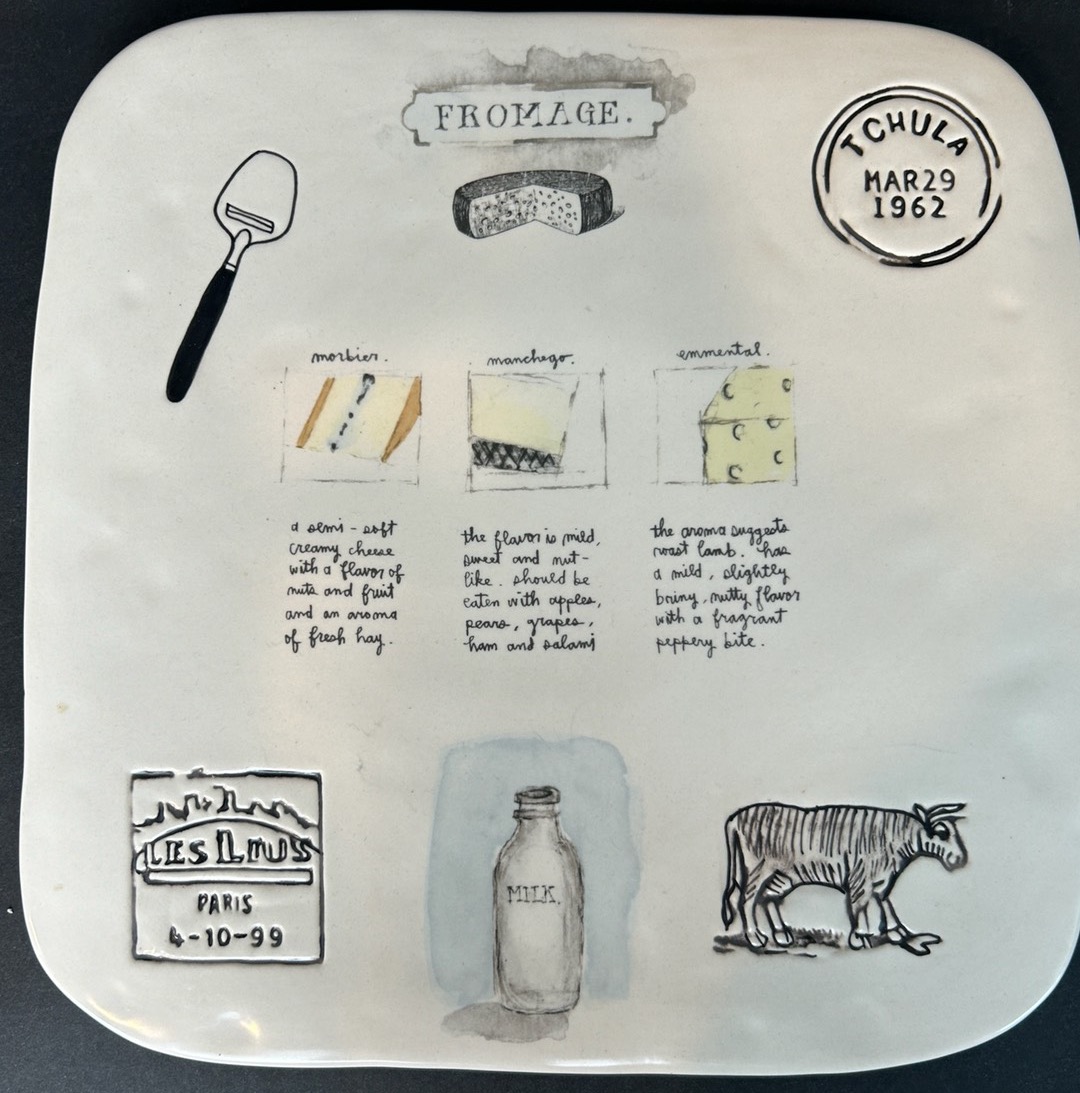 FROMAGE.
TCHULA
MAR 29
1962
morbier.
a semi-soft
creamy cheese
with a flavor of
nuts and fruit
and an aroma
of fresh hay.
manchego.
the flavor is mild,
sweet and nut-
like. should be
eaten with apples,
pears, grapes,
ham and salami
emmental.
the aroma suggests
roast lamb. has
a mild, slightly
briny, nutty flavor
with a fragrant
peppery bite.
LES
PARIS
4-10-99
MILK.